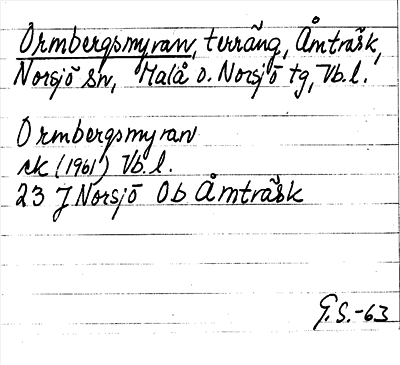 Ormbergsmyran, terräng, Åmträsk,
Norsjö sn, Malå o. Norsjö tg, Vb.l.
Ormbergsmyran
rk (1961) Vb.l.
23 J Norsjö Ob Åmträsk
G.S.-63